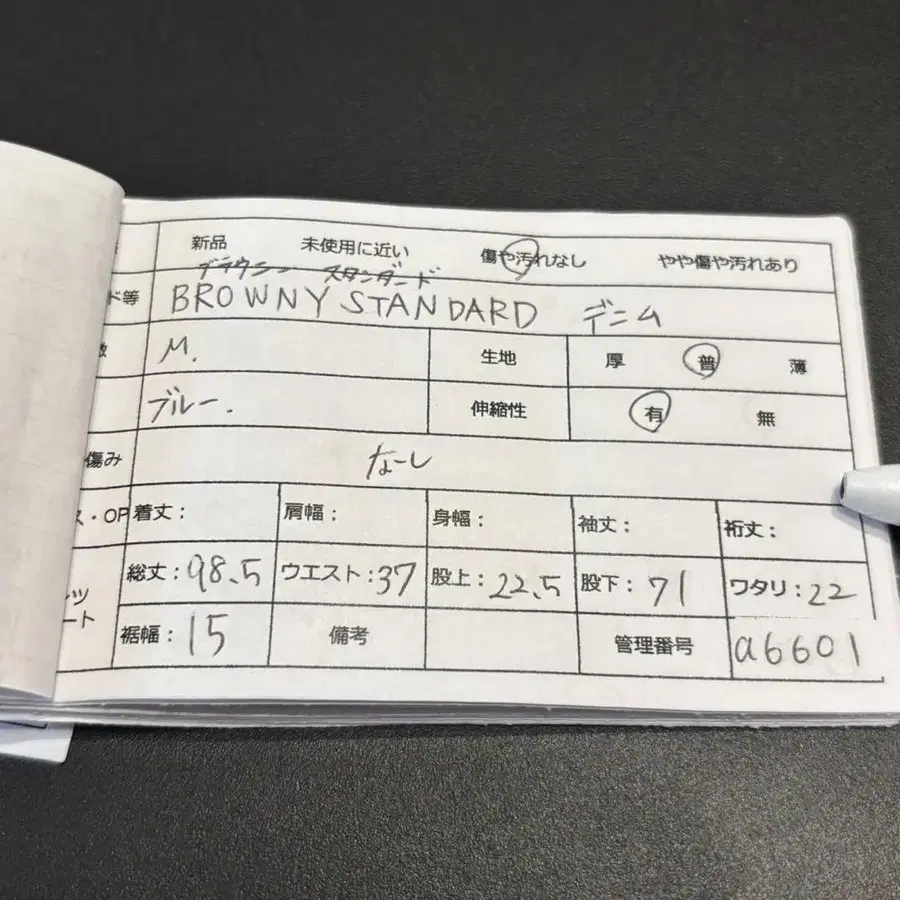 新品 未使用に近い 傷や汚れなし やや傷や汚れあり
ブラウニー スタンダード
ド等 BROWNY STANDARD デニム
M. 生地 厚 普 薄
ブルー. 伸縮性 有 無
傷み なーし
ス・OP 着丈: 肩幅: 身幅: 袖丈: 裄丈:
総丈:98.5 ウエスト:37 股上:22.5 股下:71 ワタリ:22
裾幅:15 備考 管理番号 a6601